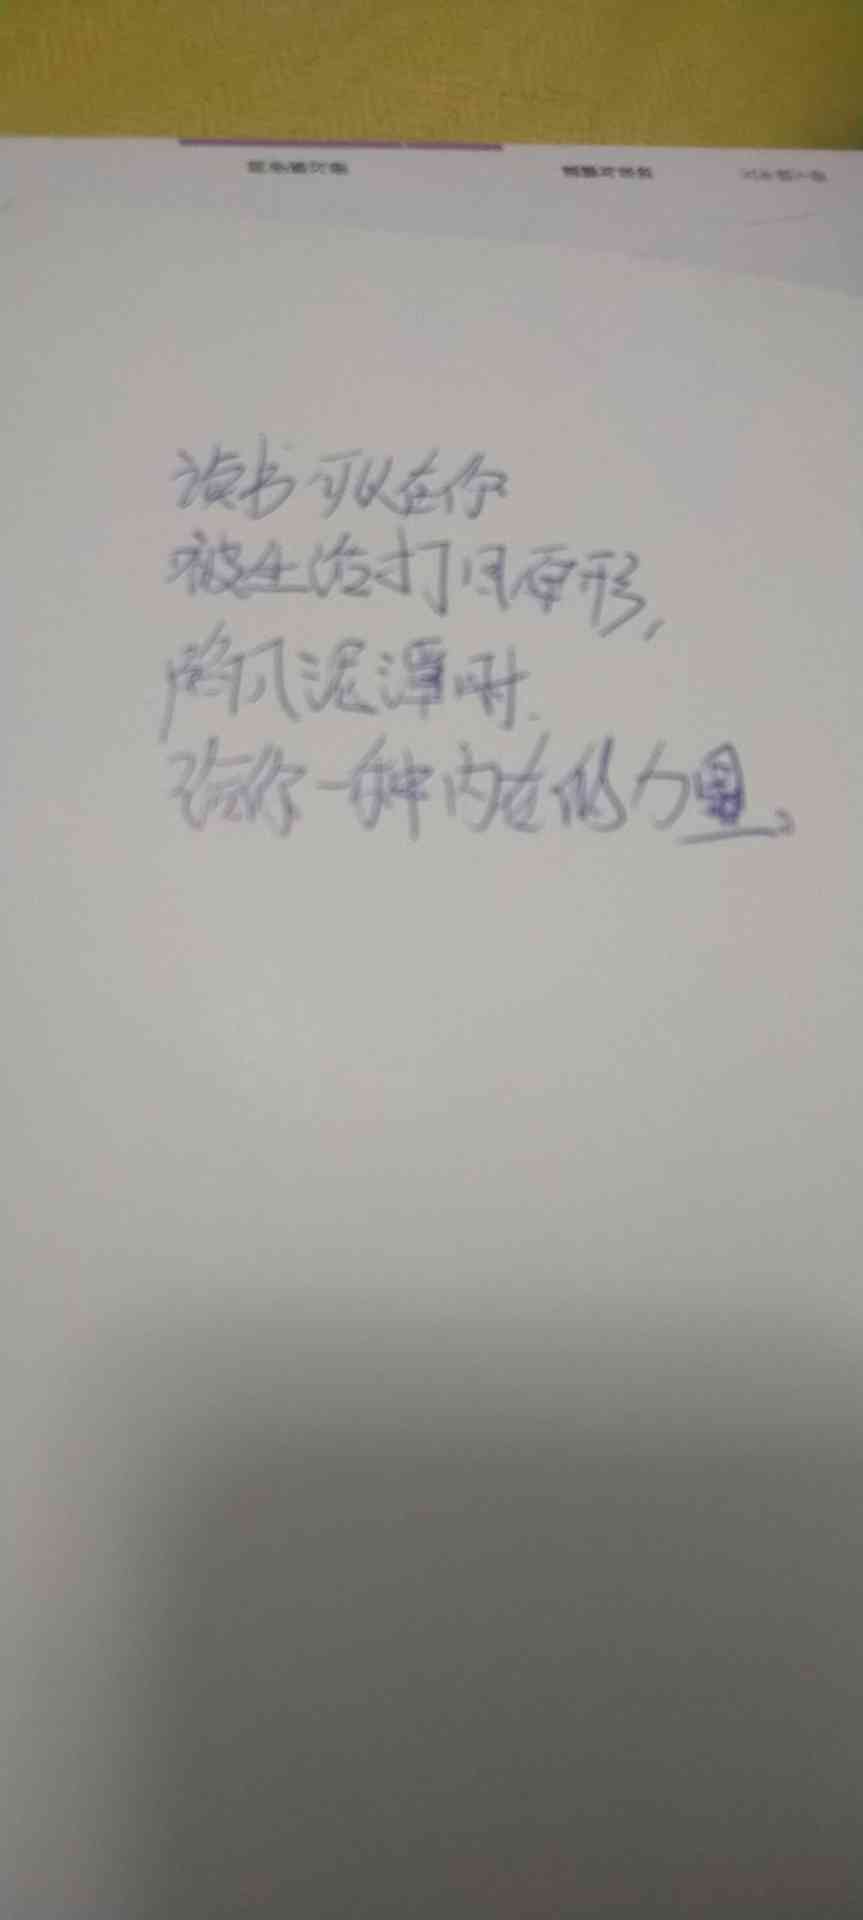 读书可以在你
被生活打回原形,
陷入泥潭时.
给你一种内在的力量。